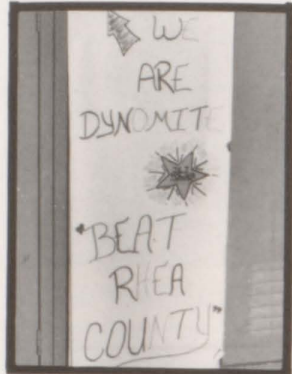 WE
ARE
DYNOMITE
"BEAT
RHEA
COUNTY"